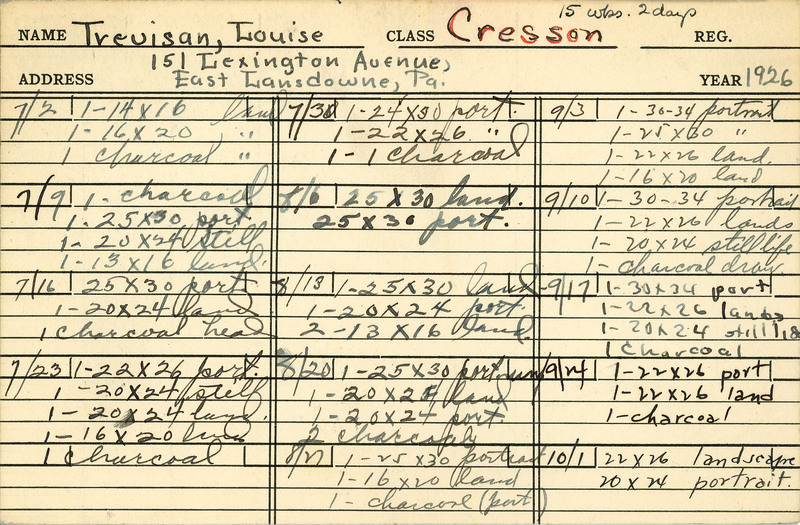 15 wks. 2 days
NAME Trevisan, Louise CLASS Cresson REG.
151 Lexington Avenue,
ADDRESS East Lansdowne, Pa. YEAR 1926
7/2 1-14 x 16 land
1-16 x 20 "
1 charcoal "
7/9 1- charcoal
1-25x30 port
1-20x24 still
1-13x16 land.
7/16 25x30 port
1-20x24 land
1 Charcoal head
7/23 1-22x26 port.
1-20x24 still
1-20x24 land.
1-16x20 land
1 Charcoal
7/30 1-24x30 port.
1-22x26 "
1-1 Charcoal
8/6 25x30 land.
25x30 port.
8/13 1-25x30 land
1-20x24 port.
2-13x16 land.
8/20 1-25x30 port
1-20x24 land
1-20x24 port.
2 charcoals
8/27 1-25x30 portrait
1-16x20 land
1- charcoal (port)
9/3 1-30-34 portrait
1-25x30 "
1-22x26 land.
1-16x20 land
9/10 1-30-34 portrait
1-22x26 lands
1-20x24 still life
1- charcoal draw
9/17 1-30x34 port
1-22x26 lands
1-20x24 still life
1 Charcoal
9/24 1-22x26 port
1-22x26 land
1-charcoal
10/1 22x26 landscape
20x24 portrait.